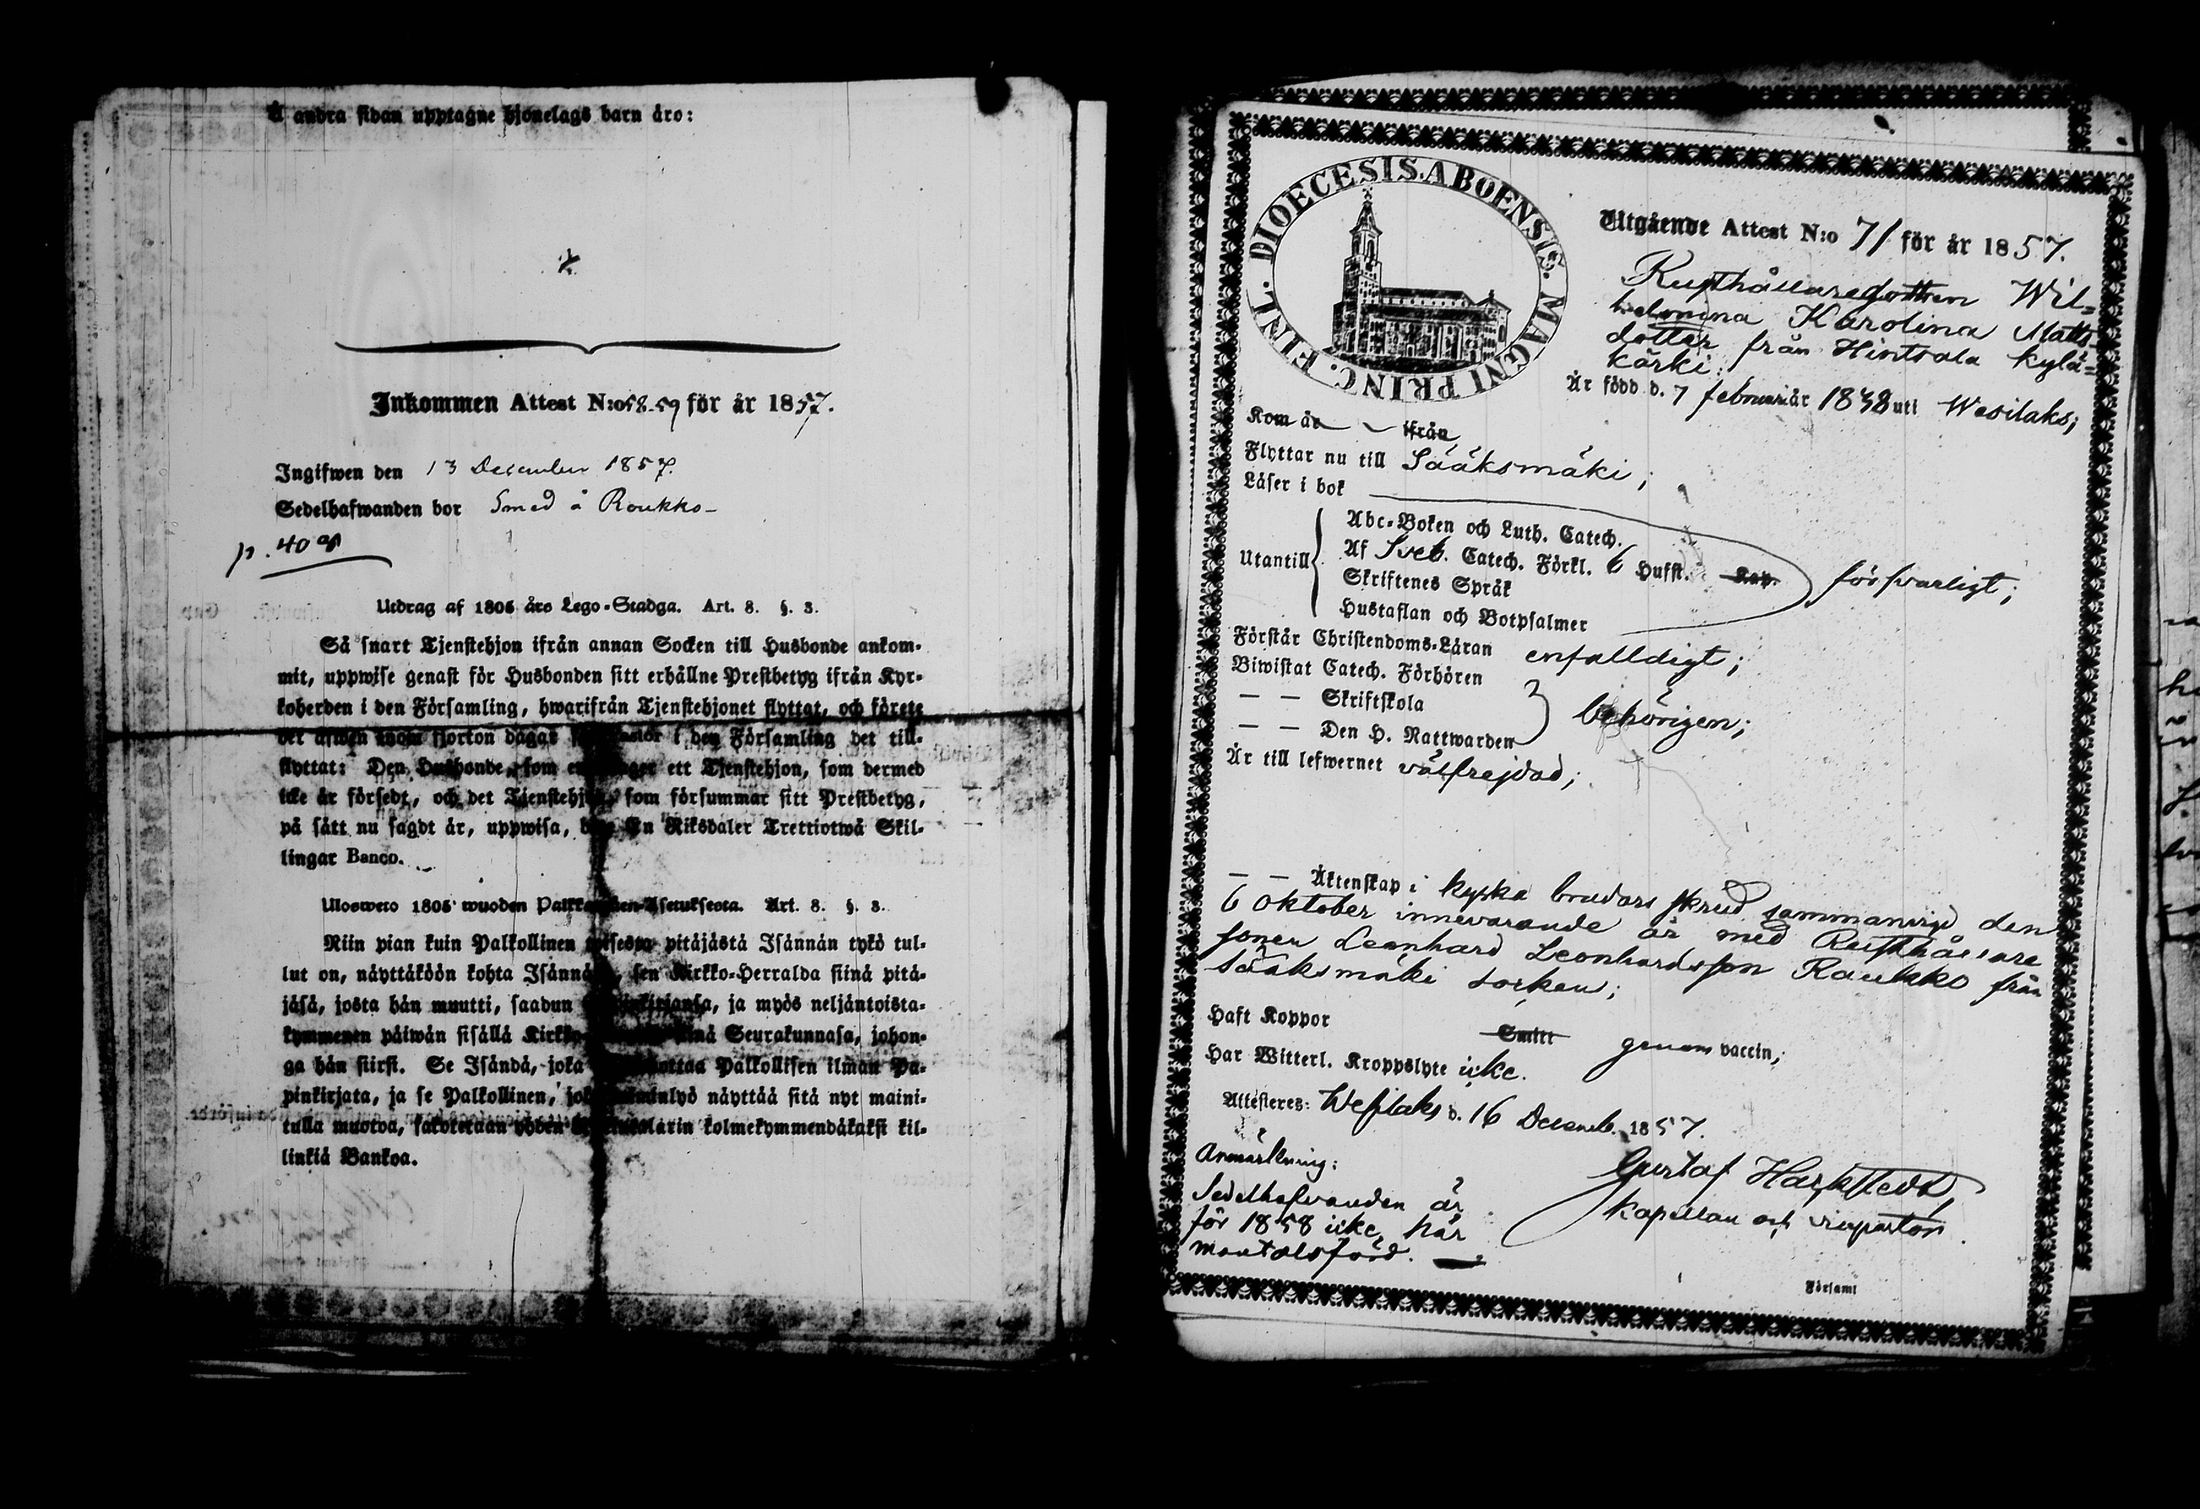 Å andra sidan upptagne hjonelags barn äro:
Inkommen Attest N:o 58-59 för år 1857.
Ingifwen den 13 December 1857.
Sedelhafwanden bor Smed å Roukko-
p. 409
Utdrag af 1805 års Lego-Stadga. Art. 8. §. 3.
Så snart Tjenstehjon ifrån annan Socken till Husbonde ankom-
mit, uppwise genast för Husbonden sitt erhållne Prestbetyg ifrån Kyr-
koherden i den Församling, hwarifrån Tjenstehjonet flyttat, och förete
det äfwen inom fjorton dagar i den Församling det till-
flyttat: Den Husbonde, som ett Tjenstehjon, som dermed
icke är försedt, och det Tjenstehjon, som försummar sitt Prestbetyg,
på sätt nu sagdt är, uppwisa, böte En Riksdaler Trettiotwå Skil-
lingar Banco.
Ulosweto 1805 wuoden Palkollisten-Asetuksesta. Art. 8. §. 3.
Niin pian kuin Palkollinen toisesta pitäjästä Isännän tykö tul-
lut on, näyttäköön kohta Isännälle, sen Kirkko-Herralda siinä pitä-
jäsä, josta hän muutti, saadun Papinkirjansa, ja myös neljäntoista-
kymmenen päiwän sisällä Kirkko- siinä Seurakunnasa, johon-
ga hän siirsi. Se Isändä, joka ottaa Palkollisen ilman Pa-
pinkirjata, ja se Palkollinen, joka näyttää sitä nyt maini-
tulla muotoa, sakoketaan yhden kolmekymmendäkaksi kil-
linkiä Bankoa.
DIOECESIS. ABOENSIS. MAGNI PRINC. FINL.
Utgående Attest N:o 71 för år 1857.
Rusthållaredottren Wil-
helmina Karolina Matts-
dotter från Hintsala kylä-
kärki;
Är född d. 7 februari år 1838 uti Wesilaks;
Kom år - ifrån
Flyttar nu till Sääksmäki;
Läser i bok
Utantill
Abc-Boken och Luth. Catech.
Af Sveb. Catech. Förkl. 6 Hufst. Kap.
Skriftenes Språk
Hustaflan och Botpsalmer
försvarligt;
Förstår Christendoms-Läran enfalldigt;
Biwistat Catech. Förhören
— — Skriftskola
— — Den H. Nattwarden
behörigen;
Är till lefwernet välfrejdad;
— — Äktenskap i kyska brudars skrud sammanvigd den
6 Oktober innevarande år med Rusthållare
sonen Leonhard Leonhardsson Roukko från
Sääksmäki socken;
Haft Koppor Smitt genom vaccin,
Har Witterl. Kroppslyte icke.
Attesteres: Wesilaks d. 16 Decemb. 1857.
Gustaf
kapellan och vicepastor
Anmärkning:
Sedelhafvanden är
för 1858 icke här
mantalsförd.
Församl